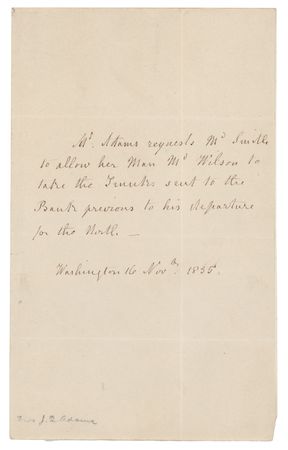 Mrs. Adams requests Mr Smith
to allow her Man Mr Wilson to
take the Trunks sent to the
Bank previous to his departure
for the North. —
Washington 16 Novbr. 1835.
Mrs J. Q Adams